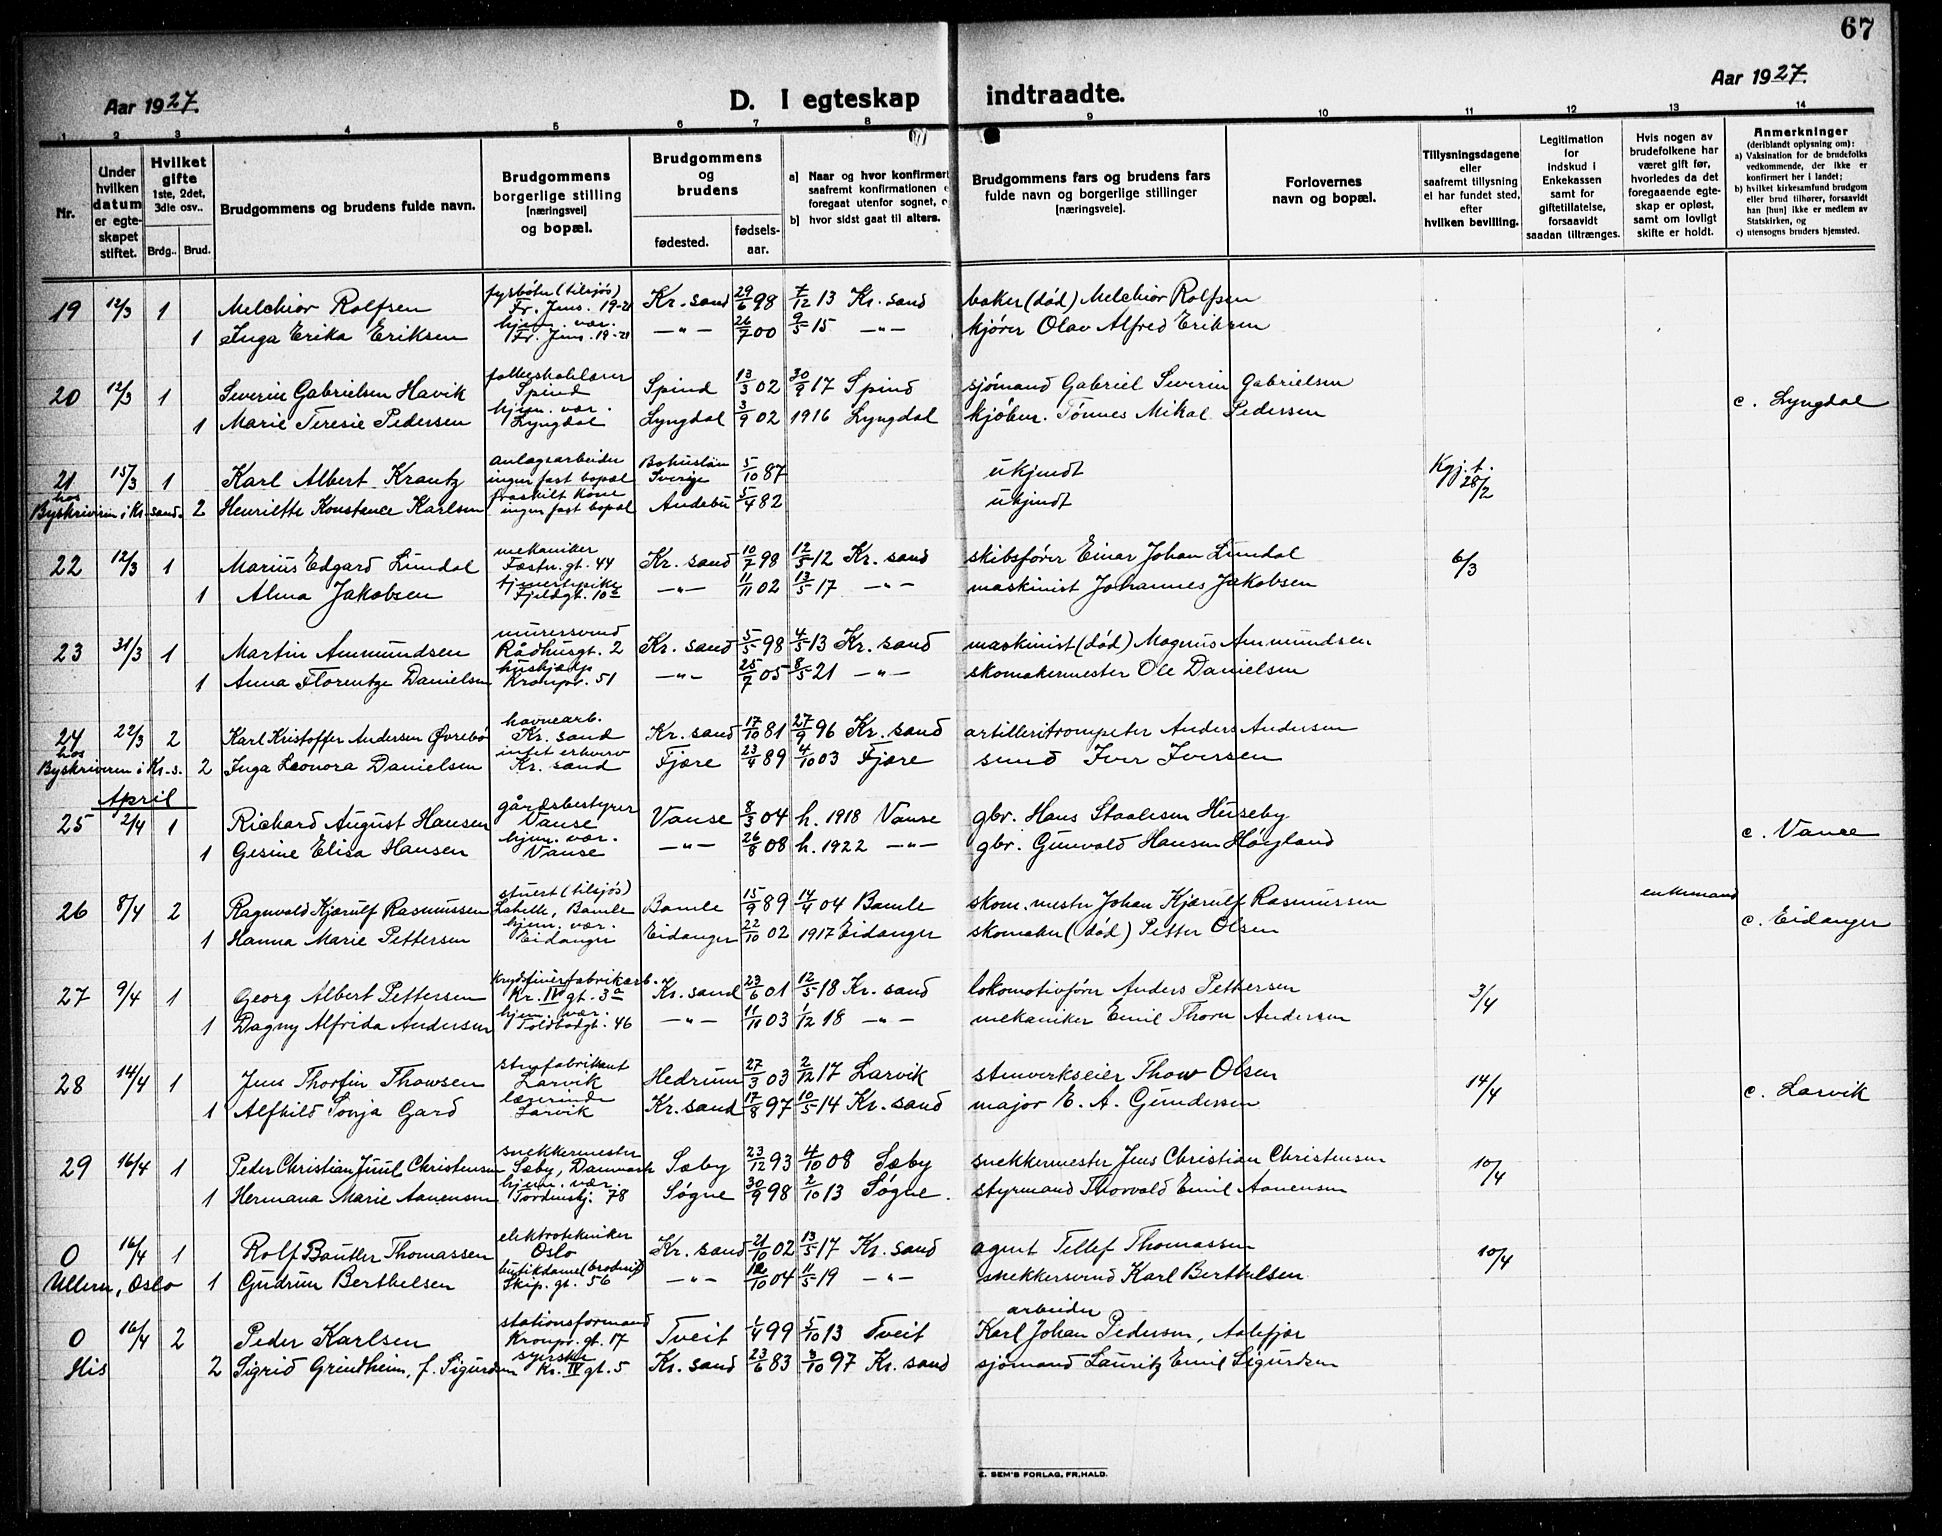 67
Aar 1927.
D. I egteskap
indtraadte.
Aar 1927.
1 2 3 4 5 6 7 8 9 10 11 12 13 14
Nr.
Under hvilken datum er egteskapet stiftet.
Hvilket gifte 1ste, 2det, 3dle osv..
Brdg.. Brud.
Brudgommens og brudens fulde navn.
Brudgommens borgerlige stilling [næringsvei] og bopæl.
Brudgommens og brudens
fødested.
fødselsaar.
a) Naar og hvor konfirmert
saafremt konfirmationen e
foregaat utenfor sognet, o
b) hvor sidst gaat til alters.
Brudgommens fars og brudens fars fulde navn og borgerlige stillinger [næringsveie].
Forlovernes navn og bopæl.
Tillysningsdagene eller saafremt tillysning ei har fundet sted, efter hvilken bevilling.
Legitimation for indskud i Enkekassen samt for giftetillatelse, forsaavidt saadan tiltrænges.
Hvis nogen av brudefolkene har været gift før, hvorledes da det foregaaende egteskap er opløst, samt om lovligt skifte er holdt.
Anmerkninger (deriblandt oplysning om):
a) Vaksination for de brudefolks vedkommende, der ikke er konfirmert her i landet;
b) hvilket kirkesamfund brudgom eller brud tilhører, forsaavidt han [hun] ikke er medlem av Statskirken, og
c) utensogns bruders hjemsted.
19 12/3 1 Melchior Rolfsen fyrbøter (tilsjøs) Fr. Jens. 19-21 Kr. sand 29/6 98 7/12 13 Kr. sand baker (død) Melchior Rolfsen
1 Inga Erika Eriksen hjem. vær. Fr. Jens. 19-21 — " — 26/7 00 9/5 15 — " — kjører Olav Alfred Eriksen
20 12/3 1 Severin Gabrielsen Havik folkeskolelærer Spind Spind 13/3 02 30/9 17 Spind sjømand Gabriel Severin Gabrielsen
1 Marie Teresie Pedersen hjem. vær. Lyngdal Lyngdal 3/9 02 1916 Lyngdal kjøbm. Tønnes Mikal Pedersen c. Lyngdal
21 15/3 1 Karl Albert Krantz anlægsarbeider ingen fast bopæl Bohuslän Sverige 5/10 87 ukjendt Kgj. t. 28/2
hos Byskriveren i Kr. sand. 2 Henriette Konstance Karlsen fraskilt kone ingen fast bopæl Andebu 5/4 82 ukjendt
22 12/3 1 Marius Edgard Lundal mekaniker Fæstn. gt. 44 Kr. sand 10/7 98 12/5 12 Kr. sand skibsfører Einar Johan Lundal 6/3
1 Alma Jakobsen tjenestepike Fjeldgt. 10 — " — 11/11 02 13/5 17 — " — maskinist Johannes Jakobsen
23 31/3 1 Martin Ammundsen murersvend Rådhusgt. 2 Kr. sand 5/5 98 4/5 13 Kr. sand maskinist (død) Magnus Ammundsen
1 Anna Florentze Danielsen hushjælp Kronpr. 51 — " — 25/7 05 8/5 21 — " — skomakermester Ole Danielsen
24 22/3 2 Karl Kristoffer Andersen Øvrebø havnearb. Kr. sand Kr. sand 17/10 81 27/9 96 Kr. sand artilleritrompeter Anders Andersen
hos Byskriveren i Kr. s. 2 Inga Leonora Danielsen intet erhverv Kr. sand Fjære 23/4 89 4/10 03 Fjære smed Iver Iversen
April
25 2/4 1 Richard August Hansen gårdsbestyrer Vanse Vanse 8/3 04 h. 1918 Vanse gbr. Hans Staalesen Huseby
1 Gesine Elisa Hansen hjem. vær. Vanse — " — 26/8 08 h. 1922 — " — gbr. Gunvald Hansen Høyland c. Vanse
26 8/4 2 Ragnvald Kjærulf Rasmussen stuert (tilsjøs) Bamle Bamle 15/9 89 14/4 04 Bamle skom. mester Johan Kjærulf Rasmussen enkemand
1 Hanna Marie Pettersen hjem. vær. Eidanger Eidanger 22/10 02 1917 Eidanger skomaker (død) Petter Olsen c. Eidanger
27 9/4 1 Georg Albert Pettersen krydsfinerfabrikarb. Kr. IV gt. 3a Kr. sand 23/6 01 12/5 18 Kr. sand lokomotivfører Anders Pettersen 3/4
1 Dagny Alfrida Andersen hjem. vær. Toldbodgt. 46 — " — 11/11 03 1/12 18 — " — mekaniker Emil Thorn Andersen
28 14/4 1 Jens Thorfin Thowsen stenfabrikant Larvik Hedrum 27/3 03 2/12 17 Larvik stenverkseier Thow Olsen 14/4
1 Alfhild Sonja Gard lærerinde Larvik Kr. sand 17/8 97 10/5 14 Kr. sand major E. A. Gundersen c. Larvik
29 16/4 1 Peder Christian Juul Christensen snekkermester Sæby, Danmark Sæby 23/12 93 4/10 08 Sæby snekkermester Jens Christian Christensen 10/4
1 Hermana Marie Aanensen hjem. vær. Tordenskj. 78 Søgne 30/9 98 2/10 13 Søgne. styrmand Thorvald Emil Aanensen
0 16/4 1 Rolf Bautler Thomassen elektrotekniker Oslo Kr. sand 21/10 02 13/5 17 Kr. sand agent Tellef Thomassen 10/4
Ullern, Oslo 1 Gudrun Berthelsen butikdame (broderi) Skip. gt. 56 — " — 12/10 04 11/5 19 — " — snekkersvend Karl Berthelsen
0 16/4 2 Peder Karlsen stationsformand Kronpr. gt. 17 Tveit 1/4 99 5/10 13 Tveit arbeider Karl Johan Pedersen, Aalefjær
His 2 Sigrid Grindheim, f. Sigurdsen syerske Kr. IV gt. 5 Kr. sand 23/6 83 3/10 97 Kr. sand sjømand Lauritz Emil Sigurdsen
C. SEM'S FORLAG, FR.HALD.